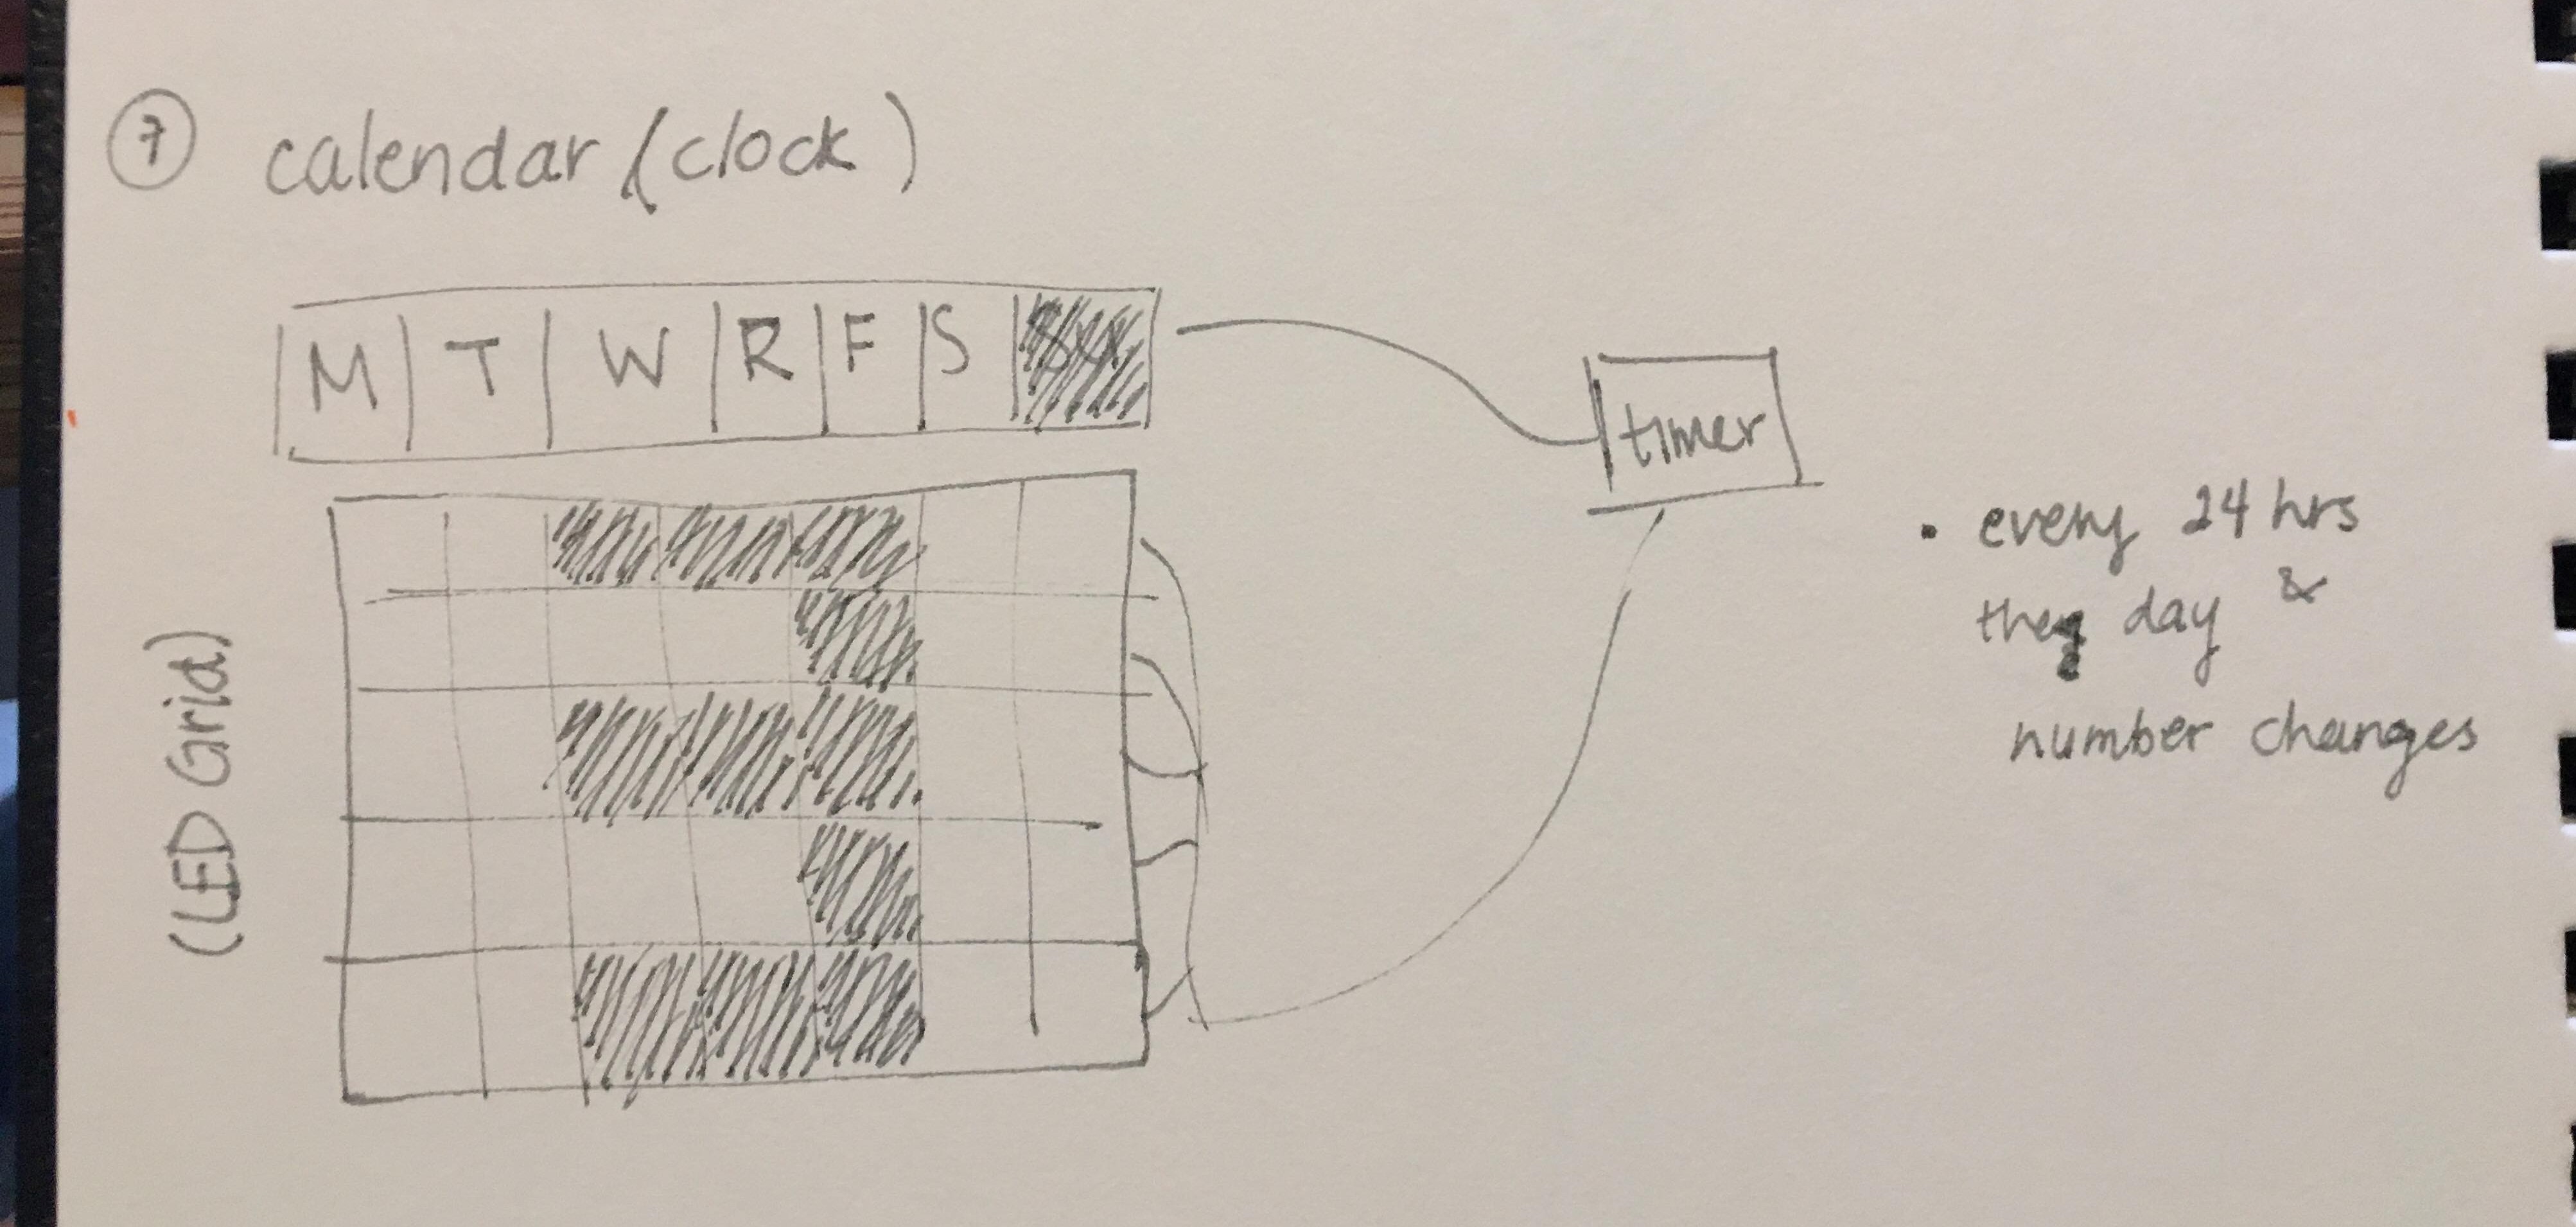 7 calendar (clock)
M T W R F S
timer
(LED Grid)
• every 24 hrs
the day &
number changes